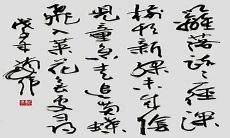 籬落疏疏一徑深
樹頭新綠未成陰
兒童急走追黃蝶
飛入菜花無處尋